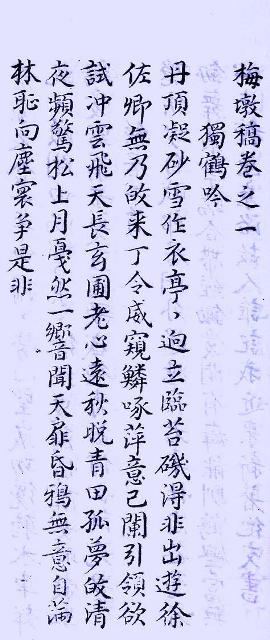 梅墩稿卷之一
獨鶴吟
丹頂凝砂雪作衣亭〻迥立臨苔磯得非出遊徐
佐卿無乃皈来丁令威窺鱗啄萍意已闌引領欲
試冲雲飛天長玄圃老心遠秋脱青田孤夢皈清
夜頻驚松上月戞然一響聞天扉昏鴉無意自蒲
林恥向塵寰爭是非